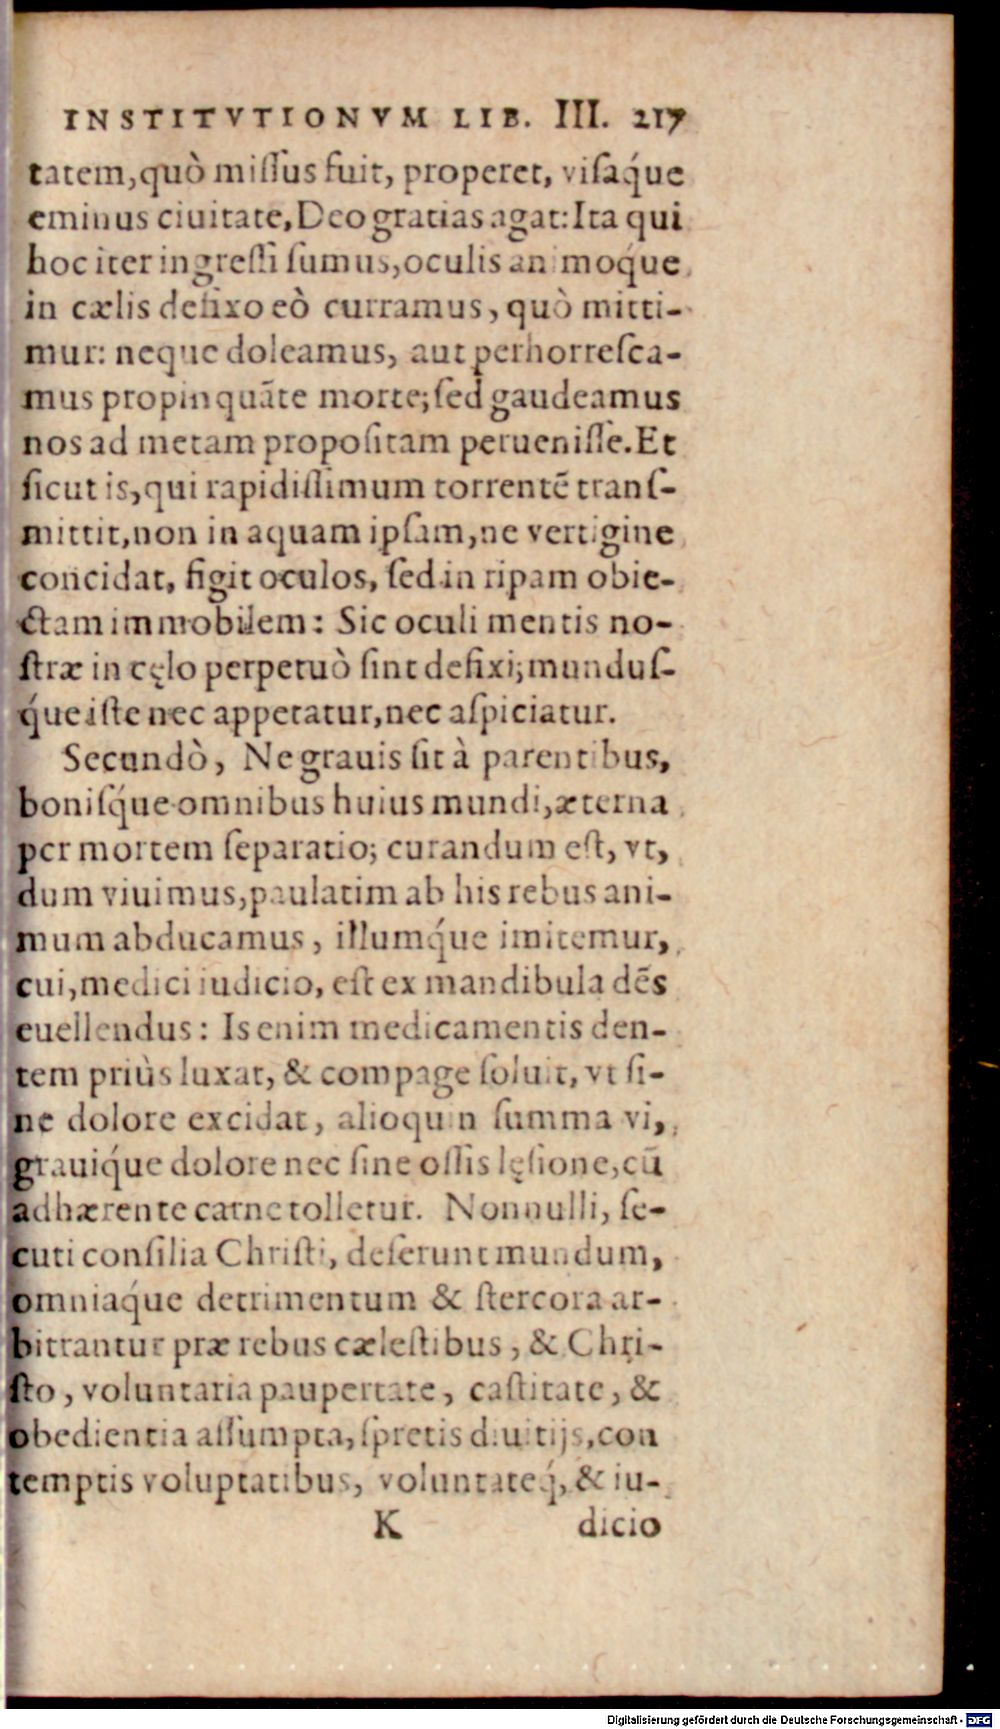 INSTITVTIONVM LIB. III. 217
tatem, quò missus fuit, properet, visaq́ue
eminus ciuitate, Deo gratias agat: Ita qui
hoc iter ingressi sumus, oculis animoq́ue
in cælis defixo eò curramus, quò mitti-
mur: neque doleamus, aut perhorresca-
mus propinquãte morte; sed gaudeamus
nos ad metam propositam peruenisse. Et
sicut is, qui rapidissimum torrentẽ trans-
mittit, non in aquam ipsam, ne vertigine
concidat, figit oculos, sed in ripam obie-
ctam immobilem: Sic oculi mentis no-
stræ in cęlo perpetuò sint defixi; mundus-
q́ue iste nec appetatur, nec aspiciatur.
Secundò, Ne grauis sit à parentibus,
bonisq́ue omnibus huius mundi, æterna
per mortem separatio; curandum est, vt,
dum viuimus, paulatim ab his rebus ani-
mum abducamus, illumq́ue imitemur,
cui, medici iudicio, est ex mandibula dẽs
euellendus: Is enim medicamentis den-
tem priùs luxat, & compage soluit, vt si-
ne dolore excidat, alioquin summa vi,
grauiq́ue dolore nec sine ossis lęsione, cũ
adhærente carne tolletur. Nonnulli, se-
cuti consilia Christi, deserunt mundum,
omniaq́ue detrimentum & stercora ar-
bitrantur præ rebus cælestibus, & Chri-
sto, voluntaria paupertate, castitate, &
obedientia assumpta, spretis diuitijs, con
temptis voluptatibus, voluntateq́, & iu-
K dicio
Digitalisierung gefördert durch die Deutsche Forschungsgemeinschaft - DFG